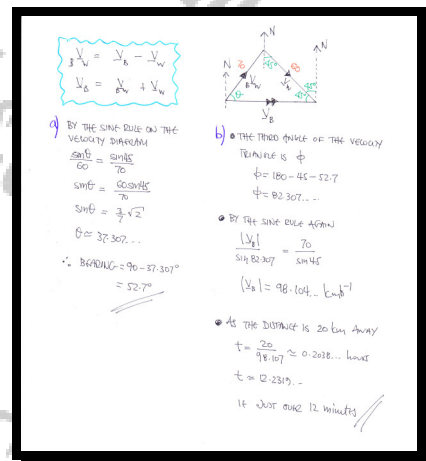 BVW = VB - VW
VB = BVW + VW
N
N
N
45°
θ
VB
a) BY THE SINE RULE ON THE
VELOCITY DIAGRAM
sinθ/60 = sin45/70
sinθ = 60sin45/70
sinθ = 3/7 √2
θ ≈ 37.307...
∴ BEARING = 90 - 37.307°
= 52.7°
b) • THE THIRD ANGLE OF THE VELOCITY
TRIANGLE IS ϕ
ϕ = 180 - 45 - 52.7
ϕ = 82.307...
• BY THE SINE RULE AGAIN
|VB|/sin 82.307 = 70/sin 45
|VB| = 98.104... kmh⁻¹
• AS THE DISTANCE IS 20 km AWAY
t = 20/98.107 ≈ 0.2038... hours
t ≈ 12.2319...
IE JUST OVER 12 minutes